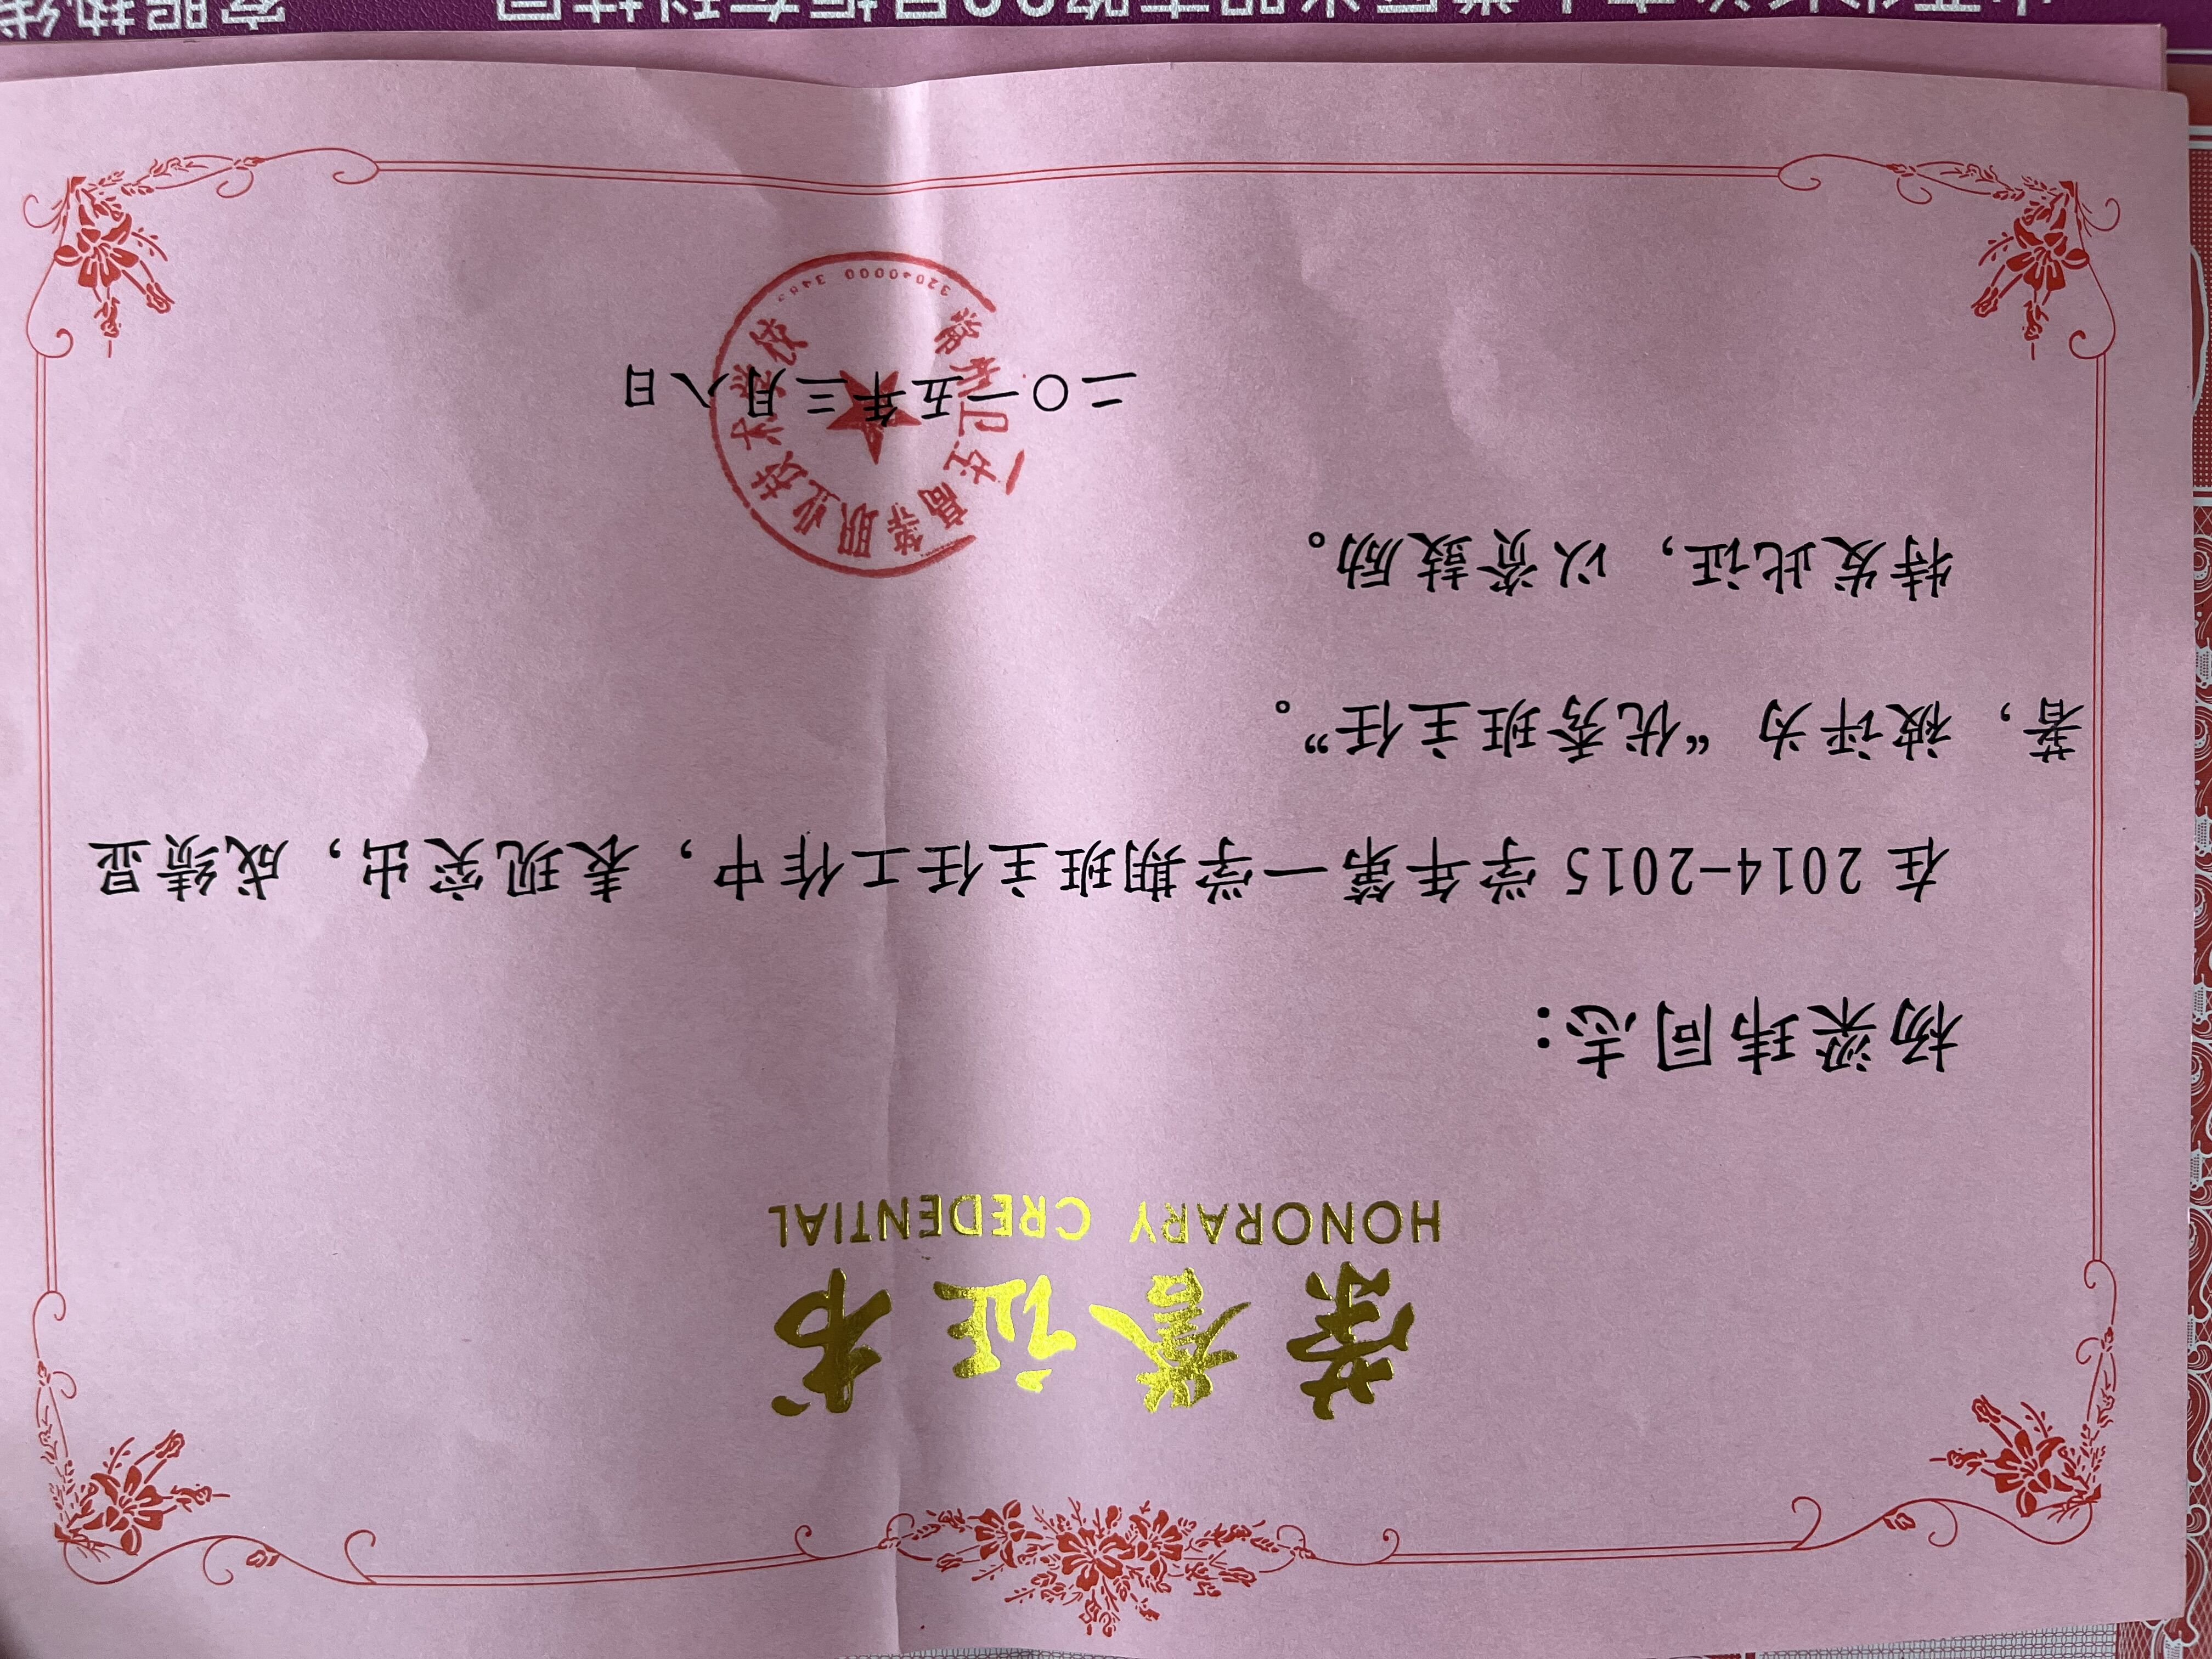 荣誉证书
HONORARY CREDENTIAL
杨梁玮同志：
在 2014-2015 学年第一学期班主任工作中，表现突出，成绩显
著，被评为“优秀班主任”。
特发此证，以资鼓励。
二〇一五年三月八日
常州卫生高等职业技术学校
客服热线